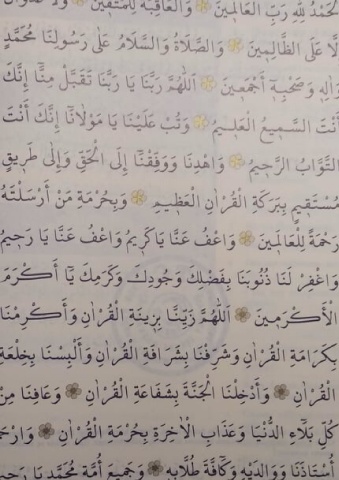 اَلْحَمْدُ لِلّٰهِ رَبِّ الْعَالَمِينَ وَالْعَاقِبَةُ لِلْمُتَّقِينَ وَلَا عُدْوَانَ
اِلَّا عَلَى الظَّالِمِينَ وَالصَّلَاةُ وَالسَّلَامُ عَلٰى رَسُولِنَا مُحَمَّدٍ
وَاٰلِهٖ وَصَحْبِهٖ اَجْمَعِينَ اَللّٰهُمَّ رَبَّنَا يَا رَبَّنَا تَقَبَّلْ مِنَّا اِنَّكَ
اَنْتَ السَّمِيعُ الْعَلِيمُ وَتُبْ عَلَيْنَا يَا مَوْلَانَا اِنَّكَ اَنْتَ
التَّوَّابُ الرَّحِيمُ وَاهْدِنَا وَوَفِّقْنَا اِلَى الْحَقِّ وَاِلٰى طَرِيقٍ
مُسْتَقِيمٍ بِبَرَكَةِ الْقُرْاٰنِ الْعَظِيمِ وَبِحُرْمَةِ مَنْ اَرْسَلْتَهُ
رَحْمَةً لِلْعَالَمِينَ وَاعْفُ عَنَّا يَا كَرِيمُ وَاعْفُ عَنَّا يَا رَحِيمُ
وَاغْفِرْ لَنَا ذُنُوبَنَا بِفَضْلِكَ وَجُودِكَ وَكَرَمِكَ يَا اَكْرَمَ
الْاَكْرَمِينَ اَللّٰهُمَّ زَيِّنَّا بِزِينَةِ الْقُرْاٰنِ وَاَكْرِمْنَا
بِكَرَامَةِ الْقُرْاٰنِ وَشَرِّفْنَا بِشَرَافَةِ الْقُرْاٰنِ وَاَلْبِسْنَا بِخِلْعَةِ
الْقُرْاٰنِ وَاَدْخِلْنَا الْجَنَّةَ بِشَفَاعَةِ الْقُرْاٰنِ وَعَافِنَا مِنْ
كُلِّ بَلَاءِ الدُّنْيَا وَعَذَابِ الْاٰخِرَةِ بِحُرْمَةِ الْقُرْاٰنِ وَارْحَمْ
اُسْتَاذَنَا وَوَالِدَيْهِ وَكَافَّةَ طُلَّابِهٖ وَجَمِيعَ اُمَّةِ مُحَمَّدٍ يَا رَحِيمُ